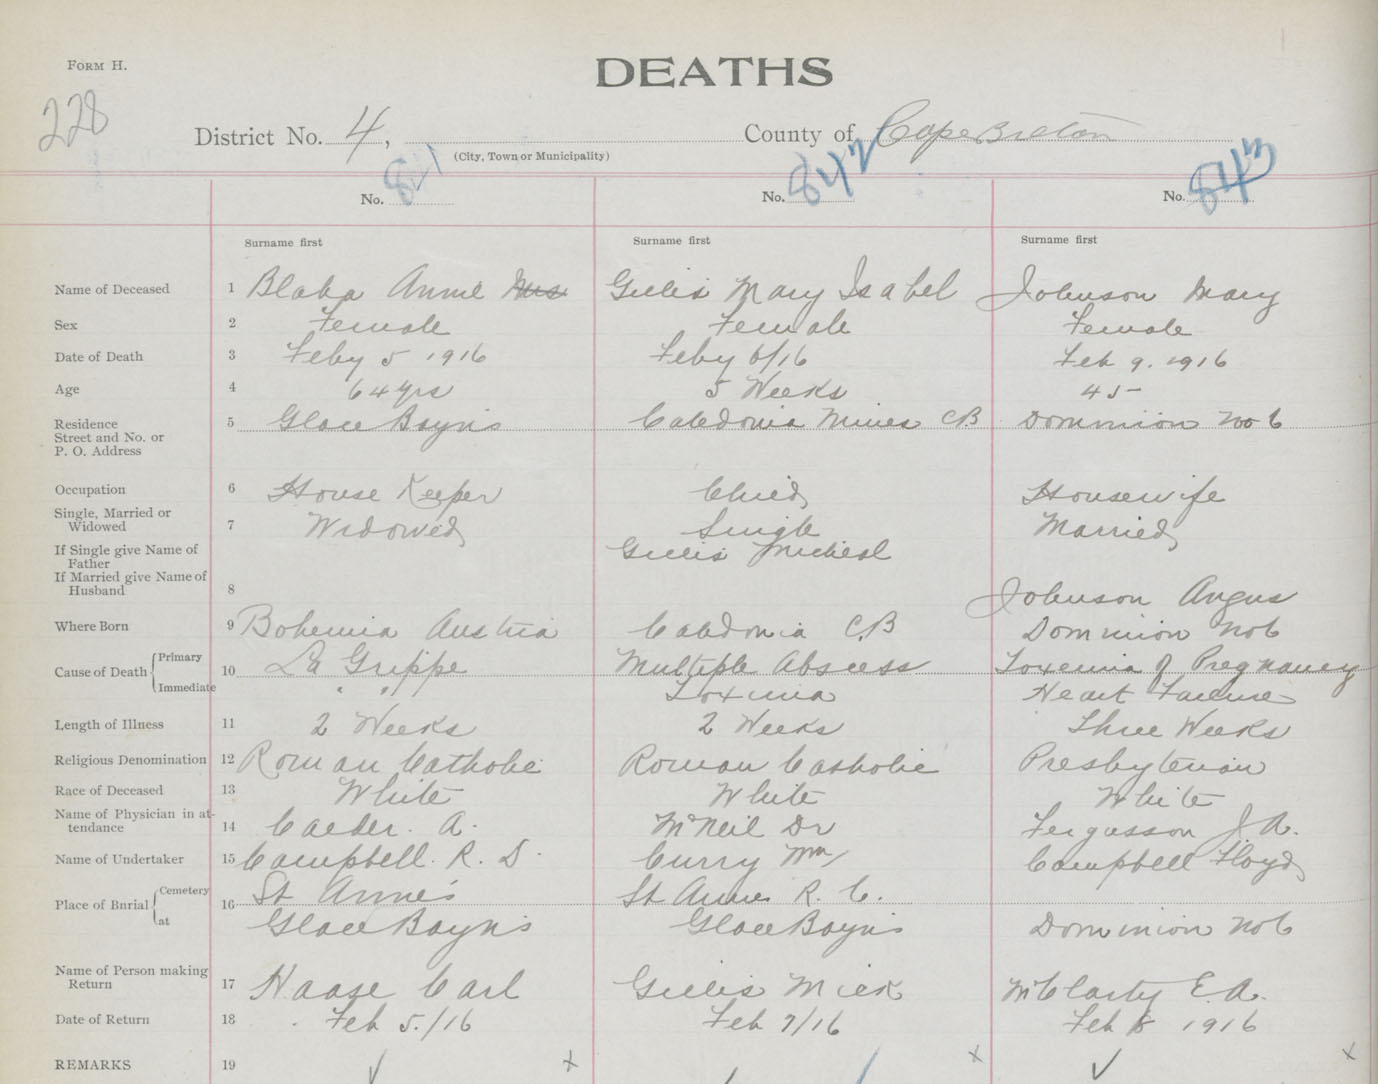 FORM H.
DEATHS
228
District No. 4, County of Cape Breton
(City, Town or Municipality)
No. 841 No. 842 No. 843
Surname first Surname first Surname first
Name of Deceased 1 Blaha Annie Mrs Gillis Mary Isabel Johnson Mary
Sex 2 Female Female Female
Date of Death 3 Feby 5 1916 Feby 6/16 Feb 9. 1916
Age 4 64 yrs 5 Weeks 45
Residence 5 Glace Bay NS Caledonia Mines CB Dominion No 6
Street and No. or
P. O. Address
Occupation 6 House Keeper Child Housewife
Single, Married or
Widowed 7 Widowed Single Married
If Single give Name of Gillis Micheal
Father
If Married give Name of
Husband 8 Johnson Angus
Where Born 9 Bohemia Austria Caledonia CB Dominion No 6
Cause of Death Primary 10 La Grippe Multiple Abscess Toxemia of Pregnancy
Immediate " " Toxemia Heart Failure
Length of Illness 11 2 Weeks 2 Weeks Three Weeks
Religious Denomination 12 Roman Catholic Roman Catholic Presbyterian
Race of Deceased 13 White White White
Name of Physician in at-
tendance 14 Calder. A. McNeil Dr Fergusson J. A.
Name of Undertaker 15 Campbell. R. D. Curry Wm Campbell Floyd
Place of Burial Cemetery 16 St Anne's St Annes R. C.
at Glace Bay NS Glace Bay NS Dominion No 6
Name of Person making
Return 17 Haase Carl Gillis Mick McClarty E. A.
Date of Return 18 Feb 5./16 Feb 7/16 Feb 8 1916
REMARKS 19 ✓ x x ✓ x